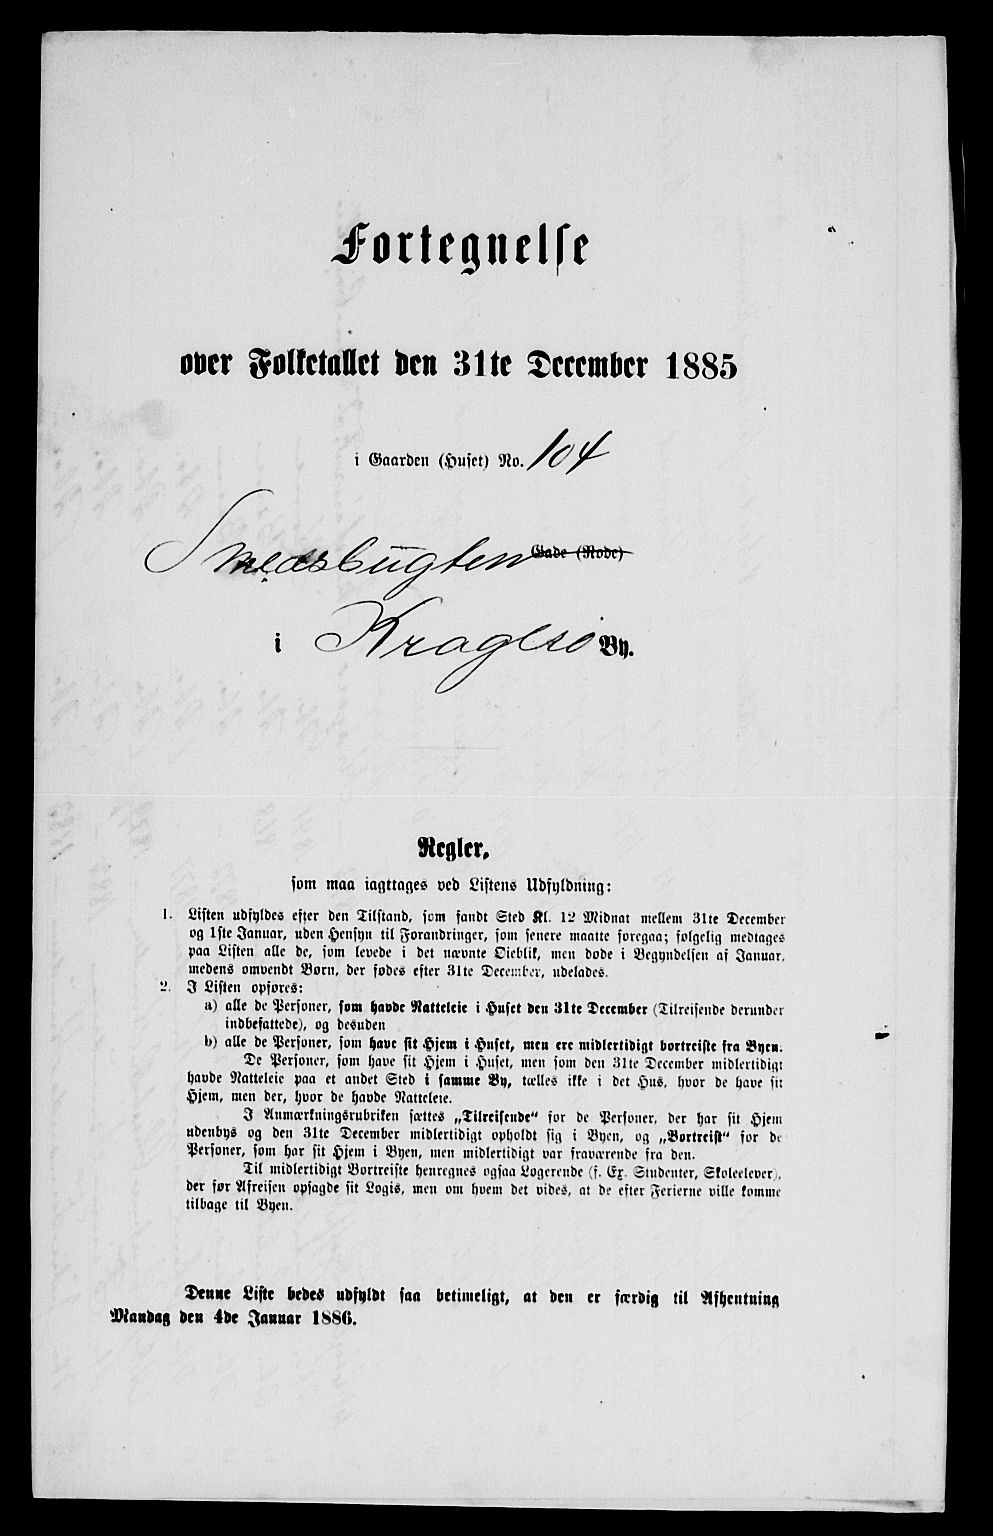 Fortegnelse
over Folketallet den 31te December 1885
i Gaarden (Huset) No. 104
Smedsbugten Gade (Rode)
i Kragerø By.
Regler,
som maa iagttages ved Listens Udfyldning:
1. Listen udfyldes efter den Tilstand, som fandt Sted Kl. 12 Midnat mellem 31te December
og 1ste Januar, uden Hensyn til Forandringer, som senere maatte foregaa; følgelig medtages
paa Listen alle de, som levede i det nævnte Øieblik, men døde i Begyndelsen af Januar,
medens omvendt Børn, der fødes efter 31te December, udelades.
2. I Listen opføres:
a) alle de Personer, som havde Natteleie i Huset den 31te December (Tilreisende derunder
indbefattede), og desuden
b) alle de Personer, som have sit Hjem i Huset, men ere midlertidigt bortreiste fra Byen.
De Personer, som have sit Hjem i Huset, men som den 31te December midlertidigt
havde Natteleie paa et andet Sted i samme By, tælles ikke i det Hus, hvor de have sit
Hjem, men der, hvor de havde Natteleie.
I Anmærkningsrubriken sættes „Tilreisende“ for de Personer, der har sit Hjem
udenbys og den 31te December midlertidigt opholdt sig i Byen, og „Bortreist“ for de
Personer, som har sit Hjem i Byen, men midlertidigt var fraværende fra den.
Til midlertidigt Bortreiste henregnes ogsaa Logerende (f. Ex. Studenter, Skoleelever),
der før Afreisen opsagde sit Logis, men om hvem det vides, at de efter Ferierne ville komme
tilbage til Byen.
Denne Liste bedes udfyldt saa betimeligt, at den er færdig til Afhentning
Mandag den 4de Januar 1886.